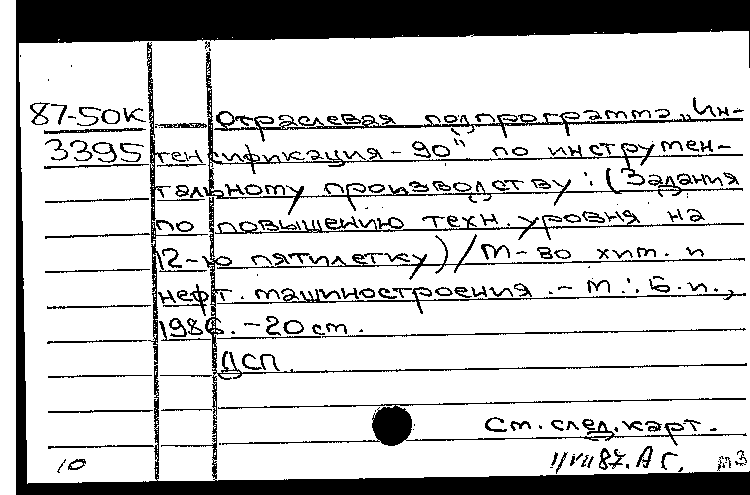 87-50К Отраслевая подпрограмма „Ин-
3395 тенсификация-90" по инструмен-
тальному производству: (Задания
по повышению техн. уровня на
12-ю пятилетку) / М-во хим. и
нефт. машиностроения. - М.: Б.и.,
1986. - 20 см.
ДСП.
См. след. карт.
10 11 VII 87. А Г. тз